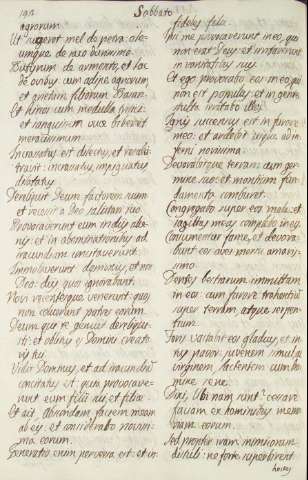 192
Sabbato
agrorum.
Ut sugerent mel de petra: ole-
umque de saxo durissimo.
Butyrum de armento, et lac
de ovibus cum adipe agnorum,
et arietum filiorum Basan.
Et hircos cum medulla tritici:
et sanguinem uvæ biberet
meracissimum.
Incrassatus est dilectus, et recalci-
travit: incrassatus, impinguatus,
dilatatus.
Dereliquit Deum factorem suum:
et recessit a Deo salutari suo.
Provocaverunt eum in diis alie-
nis: et in abominationibus ad
iracundiam concitaverunt.
Immolaverunt demoniis, et non
Deo: diis quos ignorabant.
Novi recentesque venerunt: quos
non coluerunt patres eorum.
Deum qui te genuit dereliqui-
sti: et oblitus es Domini creato
ris tui.
Vidit Dominus, et ad iracundiam
concitatus est: quia provocave-
runt eum filii sui, et filiæ.
Et ait, abscondam faciem meam
ab eis, et considerabo novissi-
ma eorum.
Generatio enim perversa est: et in-
fideles filii.
Ipsi me provocaverunt in eo, qui
non erat Deus: et irritaverunt
in vanitatibus suis.
Et ego provocabo eos in eo, qui
non est populus: et in gente
stulta irritabo illos.
Ignis succensus est in furore
meo: et ardebit usque ad in
ferni novissima.
Devorabitque terram cum ger-
mine suo: et montium fun-
damenta comburet.
Congregabo super eos mala: et
sagittas meas complebo in eis.
Consumentur fame, et devora-
bunt eos aves morsu amaris-
simo.
Dentes bestiarum immittam
in eos: cum furore trahentium
super terram, atque serpen-
tium.
Foris vastabit eos gladius, et in-
tus pavor: juvenem simul ac
virginem, lactentem cum ho-
mine sene.
Dixi, Ubi nam sunt? cessare
faciam ex hominibus memo-
riam eorum.
Sed propter iram inimicorum
distuli: ne forte superbirent
hostes